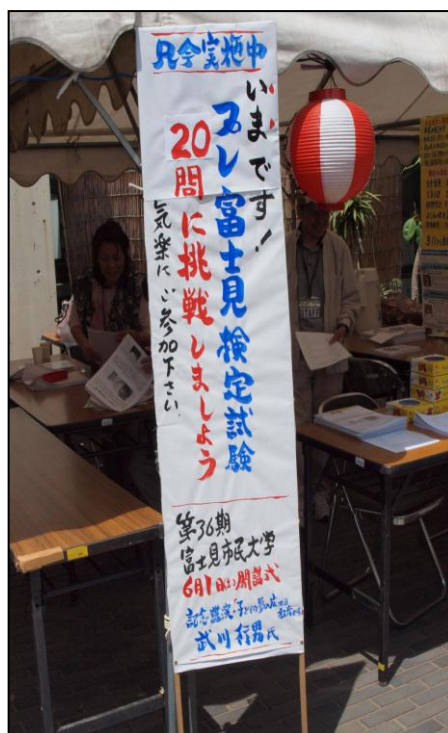 只今実施中
いまです!
プレ富士見検定試験
20問に挑戦しましょう
気楽にご参加下さい
第36期
富士見市民大学
6月1日(土)開講式
記念講演「子どもの夢の広
武川行男氏